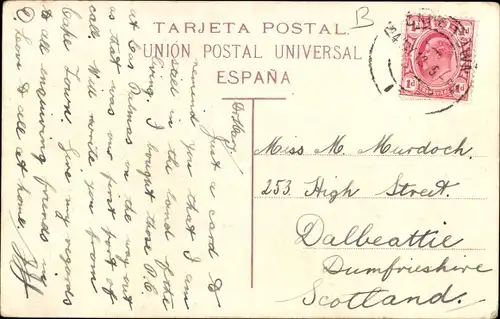 TARJETA POSTAL.
UNIÓN POSTAL UNIVERSAL
ESPAÑA
B
Just a card to
remind you that I am
still in the land of the
living. I bought these P.C.
at Las Palmas on the way out
as that was our first port of
call. Will write you from
Cape Town. Give my regards
to all enquiring friends
Love to all at home.
Miss M. Murdoch.
253. High Street.
Dalbeattie
Dumfrieshire
Scotland.
1d
1d